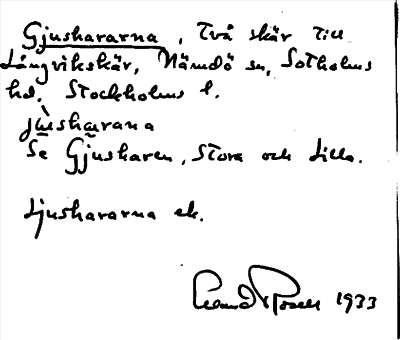 Gjushararna, Två skär till
Långvikskär, Nämdö sn, Sotholms
hd, Stockholms l.
jùsharana
Se Gjusharen, Stora och Lilla.
Ljushararna ek.
1933